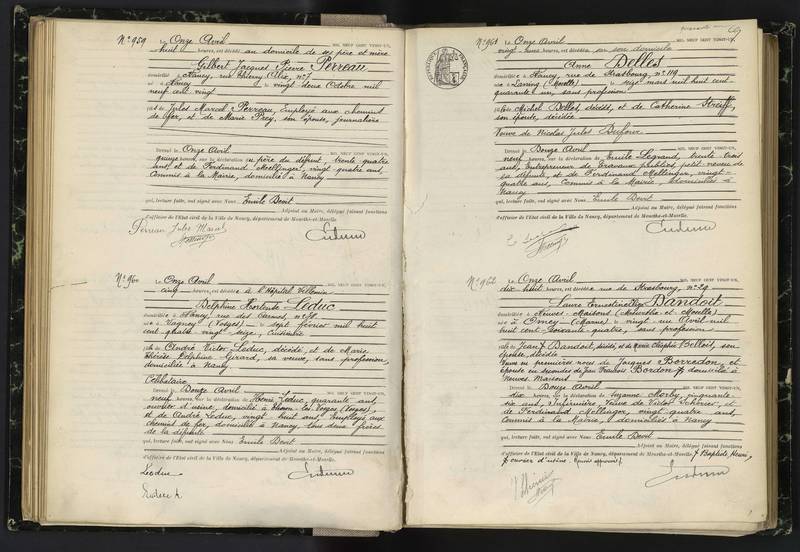 N° 959 Le Onze Avril MIL NEUF CENT VINGT-UN,
huit heures, est décédé au domicile de ses père et mère
Gilbert Jacques Pierre Perreau
domicilié à Nancy, rue Thierry Alix, n° 7
né à Nancy le vingt deux Octobre mil
neuf cent vingt
fils de Jules Marcel Perreau, Employé aux chemins
de fer, et de Marie Prey, son épouse, journalière
Dressé le Onze Avril MIL NEUF CENT VINGT-UN,
quinze heures, sur la déclaration du père du défunt, trente quatre
ans, et de Ferdinand Mellinger, vingt-quatre ans,
Commis à la Mairie, domiciliés à Nancy
qui, lecture faite, ont signé avec Nous Emile Devit
Adjoint au Maire, délégué faisant fonctions
d'officier de l'Etat civil de la Ville de Nancy, département de Meurthe-et-Moselle.
Perreau Jules Marcel
N° 960 Le Onze Avril MIL NEUF CENT VINGT-UN,
cinq heures, est décédée à l'Hôpital Villemin
Delphine Hortense Leduc
domiciliée à Nancy, rue des Carmes, n°
née à Vagney (Vosges) le sept février mil huit
cent quatre vingt seize,
fille de André Victor Leduc, décédé, et de Marie
Thérèse Delphine Girard, sa veuve, sans profession,
domiciliée à Nancy
Célibataire
Dressé le Douze Avril MIL NEUF CENT VINGT-UN,
neuf heures, sur la déclaration de Henri Leduc, quarante ans,
ouvrier d'usine, domicilié à Thaon les Vosges (Vosges),
et de André Leduc, vingt huit ans, Employé aux
chemins de fer, domicilié à Nancy, tous deux frères
de la défunte
qui, lecture faite, ont signé avec Nous Emile Devit
Adjoint au Maire, délégué faisant fonctions
d'officier de l'Etat civil de la Ville de Nancy, département de Meurthe-et-Moselle.
Leduc
Leduc A
69
N° 961 Le Onze Avril MIL NEUF CENT VINGT-UN,
vingt heures, est décédée en son domicile
Anne Belles
domiciliée à Nancy, rue de Strasbourg n° 119
née à Larring (Moselle) le seize mars mil huit cent
quarante un, sans profession
fille de Michel Belles, décédé, et de Catherine Streiff,
son épouse, décédée
Veuve de Nicolas Jules Dufour
Dressé le Douze Avril MIL NEUF CENT VINGT-UN,
neuf heures, sur la déclaration de Emile Legrand, trente trois
ans, Entrepreneur de travaux publics, petit-neveu de
la défunte, et de Ferdinand Mellinger, vingt-
quatre ans, Commis à la Mairie, domiciliés à
Nancy
qui, lecture faite, ont signé avec Nous Emile Devit
Adjoint au Maire, délégué faisant fonctions
d'officier de l'Etat civil de la Ville de Nancy, département de Meurthe-et-Moselle.
N° 962 Le Onze Avril MIL NEUF CENT VINGT-UN,
dix huit heures, est décédée rue de Strasbourg, n° 29
Laure Ernestine Bandoit
domiciliée à Neuves-Maisons (Meurthe-et-Moselle)
née à Omey (Marne) le vingt un Avril mil huit
cent soixante quatre, sans profession
fille de Jean Bandoit, décédé, et de Marie Bellois, son
épouse, décédée
Veuve en premières noces de Jacques Borredon, et
épouse en secondes de Jean François Bordon, domicilié à
Neuves Maisons
Dressé le Douze Avril MIL NEUF CENT VINGT-UN,
dix heures, sur la déclaration de Suzanne Morby, cinquante-
six ans, Infirmière, Veuve de Victor Schérier, et
de Ferdinand Mellinger, vingt quatre ans,
Commis à la Mairie, domiciliés à Nancy
qui, lecture faite, ont signé avec Nous Emile Devit
Adjoint au Maire, délégué faisant fonctions
d'officier de l'Etat civil de la Ville de Nancy, département de Meurthe-et-Moselle. Baptiste Henri,
ouvrier d'usine.